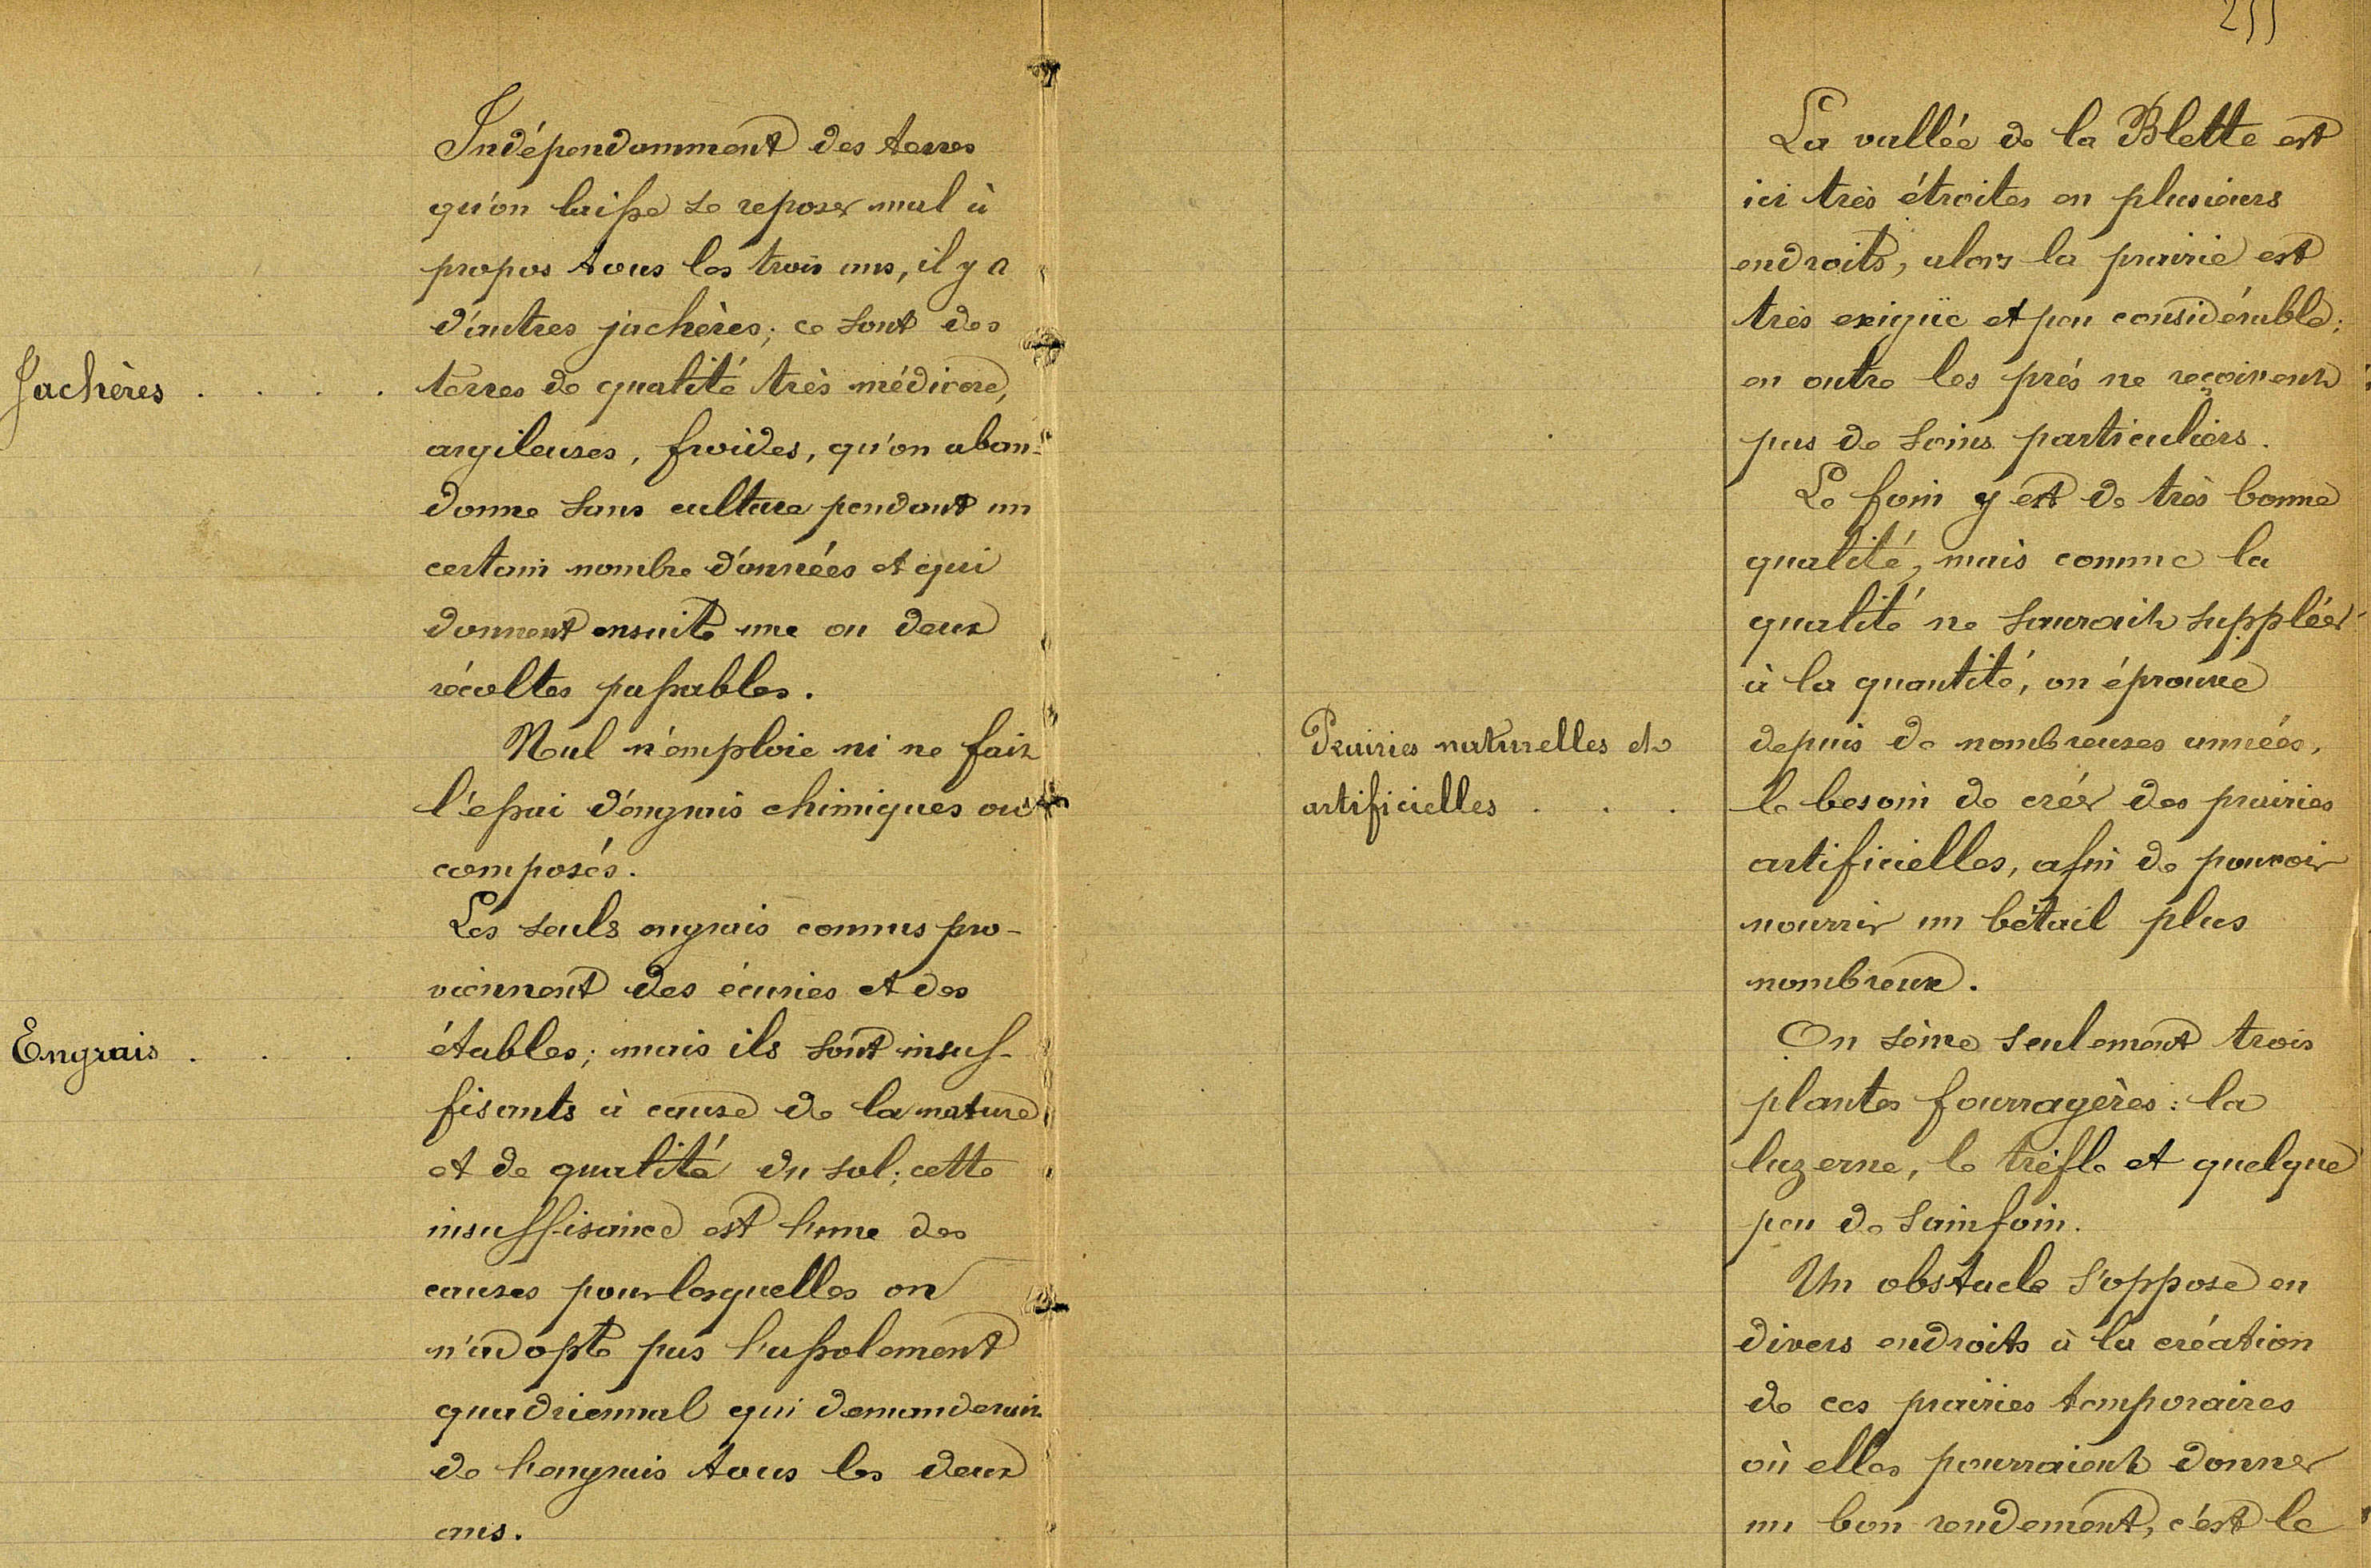 Indépendamment des terres
qu'on laisse se reposer mal à
propos tous les trois ans, il y a
d'autres jachères; ce sont des
Jachères . . . . terres de qualité très médiocre,
argileuses, froides, qu'on aban-
donne sans culture pendant un
certain nombre d'années et qui
donnent ensuite une ou deux
récoltes passables.
Nul n'emploie ni ne fait
l'essai d'engrais chimiques ou
composés.
Les seuls engrais connus pro-
viennent des écuries et des
Engrais . . . étables; mais ils sont insuf-
fisants à cause de la nature
et de qualité du sol; cette
insuffisance est l'une des
causes pour lesquelles on
n'adopte pas l'assolement
quadriennal qui demanderait
de l'engrais tous les deux
ans.
255
La vallée de la Blette est
ici très étroites en plusieurs
endroits, alors la prairie est
très exigüe et peu considérable;
en outre les prés ne reçoivent
pas de soins particuliers.
Le foin y est de très bonne
qualité, mais comme la
qualité ne saurait suppléer
à la quantité, on éprouve
Prairies naturelles et depuis de nombreuses années,
artificielles . . . le besoin de créer des prairies
artificielles, afin de pouvoir
nourrir un bétail plus
nombreux.
On sème seulement trois
plantes fourragères: la
luzerne, le trèfle et quelque
peu de sainfoin.
Un obstacle s'oppose en
divers endroits à la création
de ces prairies temporaires
où elles pourraient donner
un bon rendement, c'est le